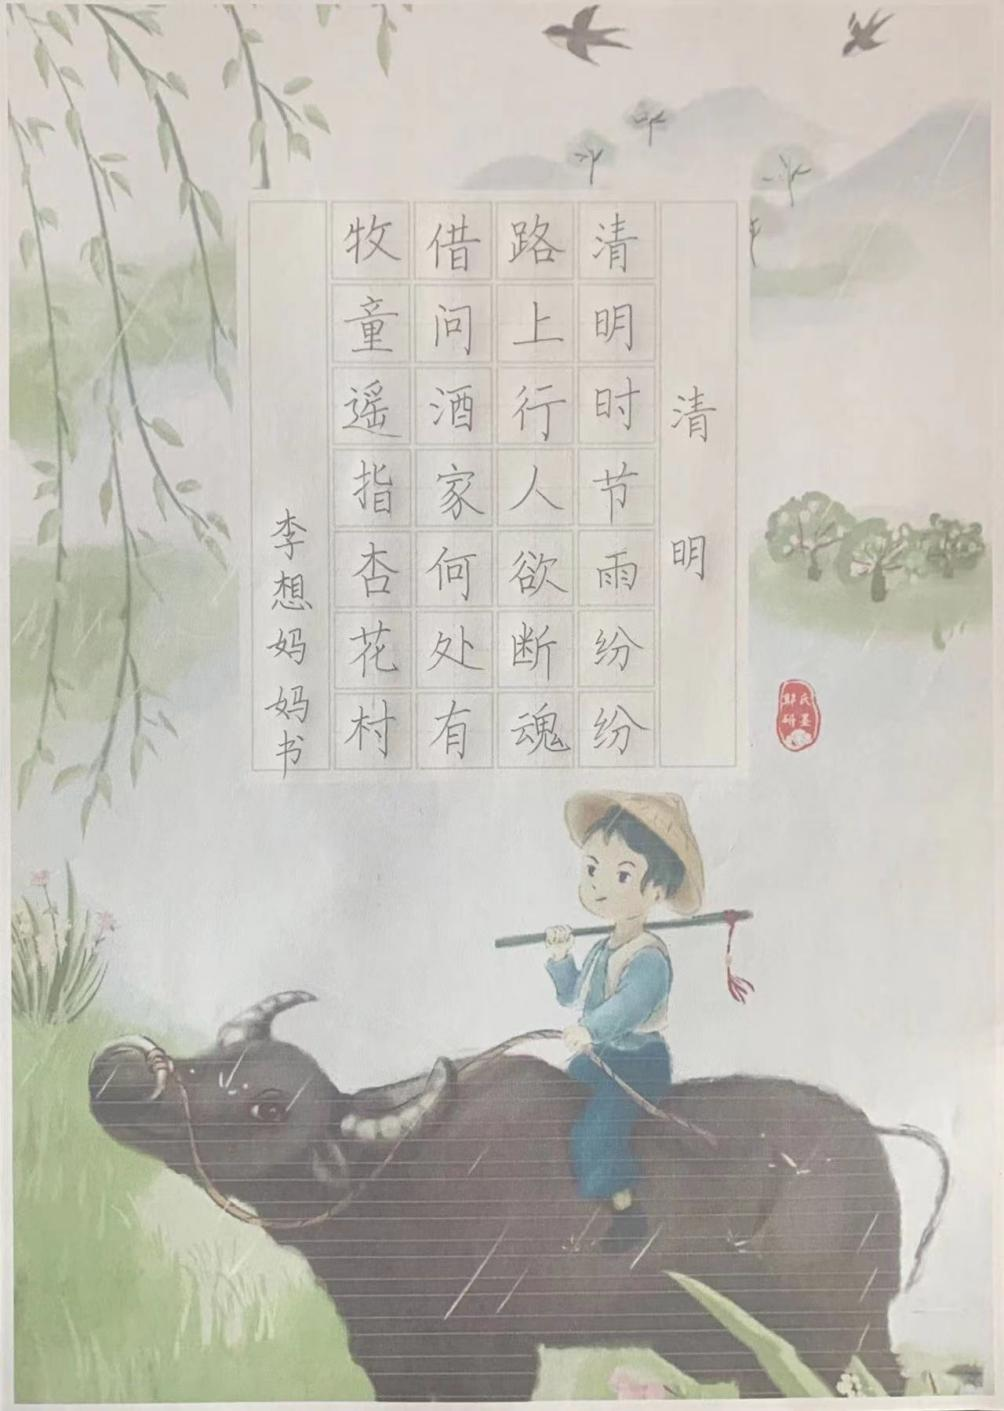 清明
清明时节雨纷纷
路上行人欲断魂
借问酒家何处有
牧童遥指杏花村
李想妈妈书